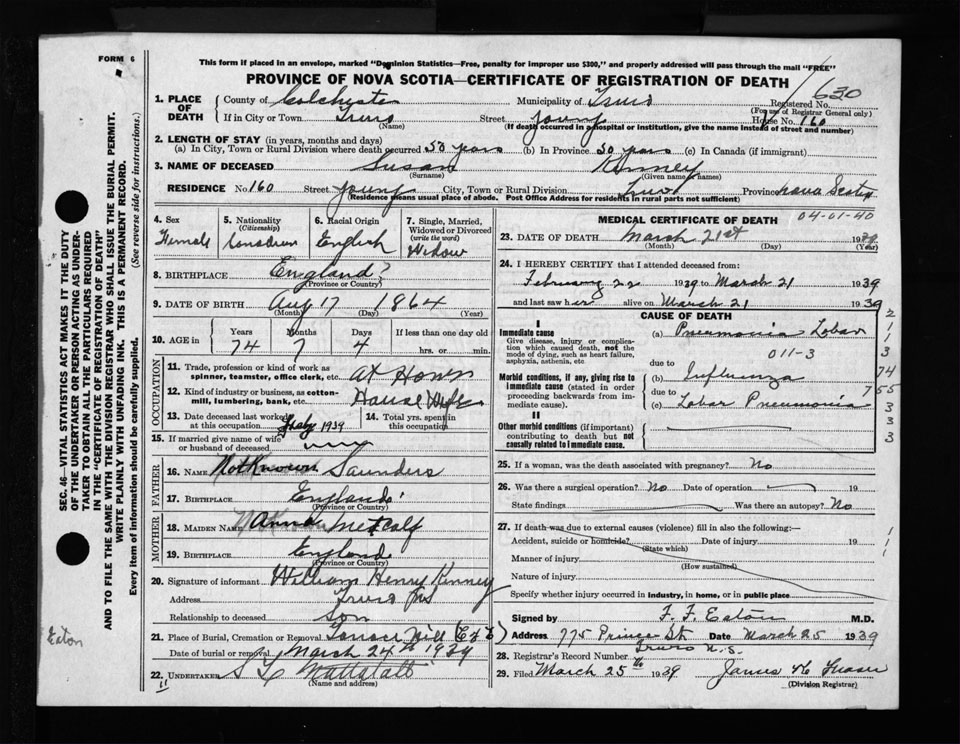 FORM 6
This form if placed in an envelope, marked "Dominion Statistics—Free, penalty for improper use $300," and properly addressed will pass through the mail "FREE"
PROVINCE OF NOVA SCOTIA—CERTIFICATE OF REGISTRATION OF DEATH
630
1. PLACE OF DEATH
County of Colchester Municipality of Truro Registered No.
(For use of Registrar General only)
If in City or Town Truro Street Young House No. 160
(Name) (If death occurred in a hospital or institution, give the name instead of street and number)
2. LENGTH OF STAY (in years, months and days)
(a) In City, Town or Rural Division where death occurred 50 years (b) In Province 50 years (c) In Canada (if immigrant)
3. NAME OF DECEASED Susan Kinney
(Surname) (Given name or names)
RESIDENCE No. 160 Street Young City, Town or Rural Division Truro Province Nova Scotia
(Residence means usual place of abode. Post Office Address for residents in rural parts not sufficient)
SEC. 46—VITAL STATISTICS ACT MAKES IT THE DUTY
OF THE UNDERTAKER OR PERSON ACTING AS UNDER-
TAKER TO OBTAIN ALL THE PARTICULARS REQUIRED
IN THE "CERTIFICATE OF REGISTRATION OF DEATH"
AND TO FILE THE SAME WITH THE DIVISION REGISTRAR WHO SHALL ISSUE THE BURIAL PERMIT.
WRITE PLAINLY WITH UNFADING INK. THIS IS A PERMANENT RECORD.
Every item of information should be carefully supplied. (See reverse side for instructions.)
Eaton
4. Sex
Female
5. Nationality
(Citizenship)
Canadian
6. Racial Origin
English
7. Single, Married, Widowed or Divorced
(write the word)
Widow
8. BIRTHPLACE England?
(Province or Country)
9. DATE OF BIRTH Aug 17 1864
(Month) (Day) (Year)
10. AGE in Years Months Days If less than one day old
74 7 4 hrs. or min.
OCCUPATION
11. Trade, profession or kind of work as spinner, teamster, office clerk, etc. At Home
12. Kind of industry or business, as cotton-mill, lumbering, bank, etc. House Wife
13. Date deceased last worked at this occupation Feby 1939
14. Total yrs. spent in this occupation
15. If married give name of wife or husband of deceased
FATHER
16. NAME Not Known Saunders
17. BIRTHPLACE England
(Province or Country)
MOTHER
18. MAIDEN NAME Anna Metcalf
19. BIRTHPLACE England
(Province or Country)
20. Signature of informant William Henry Kinney
Address Truro NS
Relationship to deceased Son
21. Place of Burial, Cremation or Removal Terrace Hill
Date of burial or removal March 24th 1939
22. UNDERTAKER
(Name and address)
MEDICAL CERTIFICATE OF DEATH
04-01-40
23. DATE OF DEATH March 21st 1939
(Month) (Day)
24. I HEREBY CERTIFY that I attended deceased from:
February 22 1939 to March 21 1939
and last saw her alive on March 21 1939
CAUSE OF DEATH
I
Immediate cause (a) Pneumonia Lobar
Give disease, injury or complication which caused death, not the mode of dying, such as heart failure, asphyxia, asthenia, etc.
011-3
due to
Morbid conditions, if any, giving rise to immediate cause (stated in order proceeding backwards from immediate cause).
(b) Influenza
due to
(c) Lobar Pneumonia
II
Other morbid conditions (if important) contributing to death but not causally related to immediate cause.
2
1
1
3
74
755
3
3
3
25. If a woman, was the death associated with pregnancy? No
26. Was there a surgical operation? No Date of operation 19
State findings Was there an autopsy? No
27. If death was due to external causes (violence) fill in also the following:—
Accident, suicide or homicide? Date of injury 19
(State which)
Manner of injury
(How sustained)
Nature of injury
Specify whether injury occurred in industry, in home, or in public place
1
1
Signed by F. F. Eaton M.D.
Address 775 Prince St. Date March 25 1939
Truro N.S.
28. Registrar's Record Number
29. Filed March 25th 1939 James
(Division Registrar)